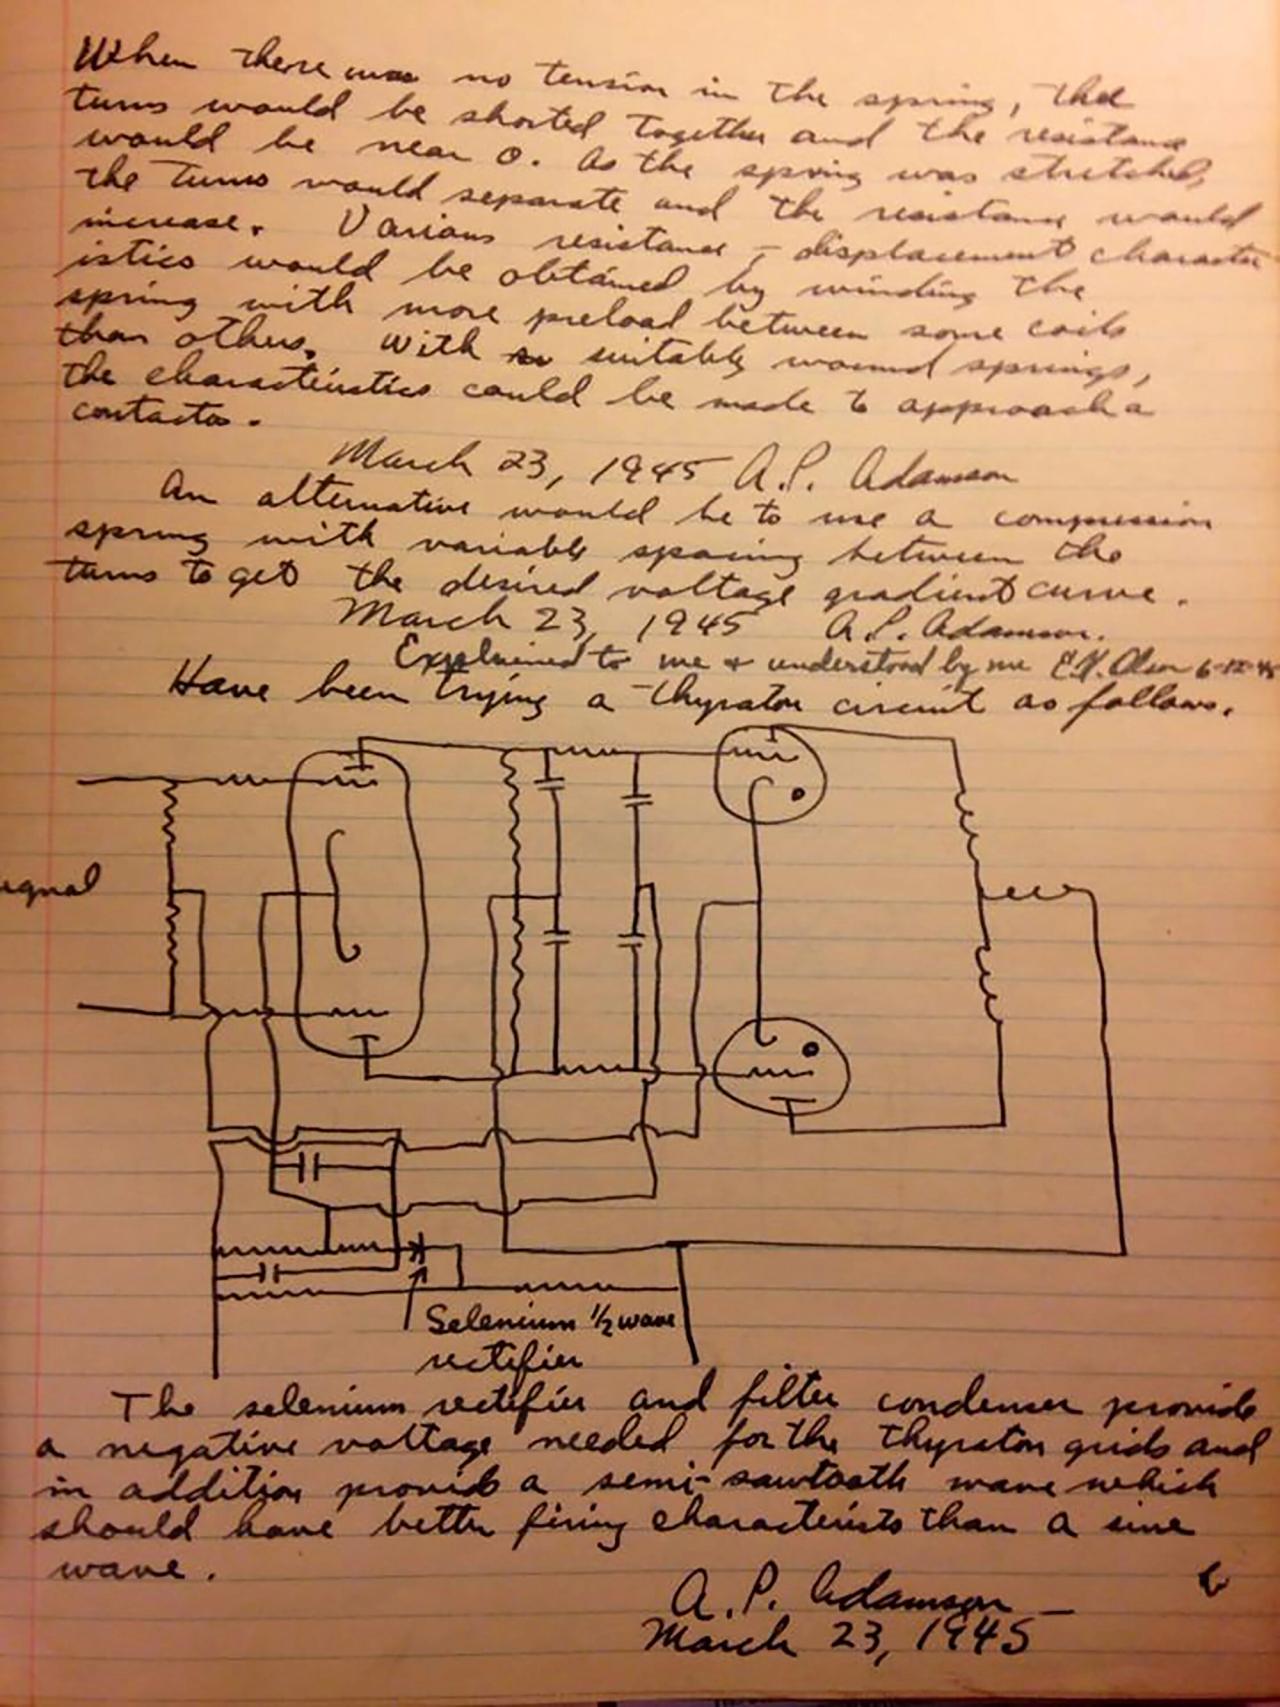 When there was no tension in the spring, the
turns would be shorted together and the resistance
would be near 0. As the spring was stretched,
the turns would separate and the resistance would
increase. Various resistance - displacement character
istics would be obtained by winding the
spring with more preload between some coils
than others. With suitably wound springs,
the characteristics could be made to approach a
contactor.
March 23, 1945 A.P. Adamson
An alternative would be to use a compression
spring with variable spacing between the
turns to get the desired voltage gradient curve.
March 23, 1945 A.P. Adamson.
Explained to me & understood by me Olson
Have been trying a thyraton circuit as follows.
ignal
Selenium 1/2 wave
rectifier
The selenium rectifier and filter condenser provide
a negative voltage needed for the thyraton grids and
in addition provide a semi-sawtooth wave which
should have better firing characterists than a sine
wave.
A.P. Adamson
March 23, 1945